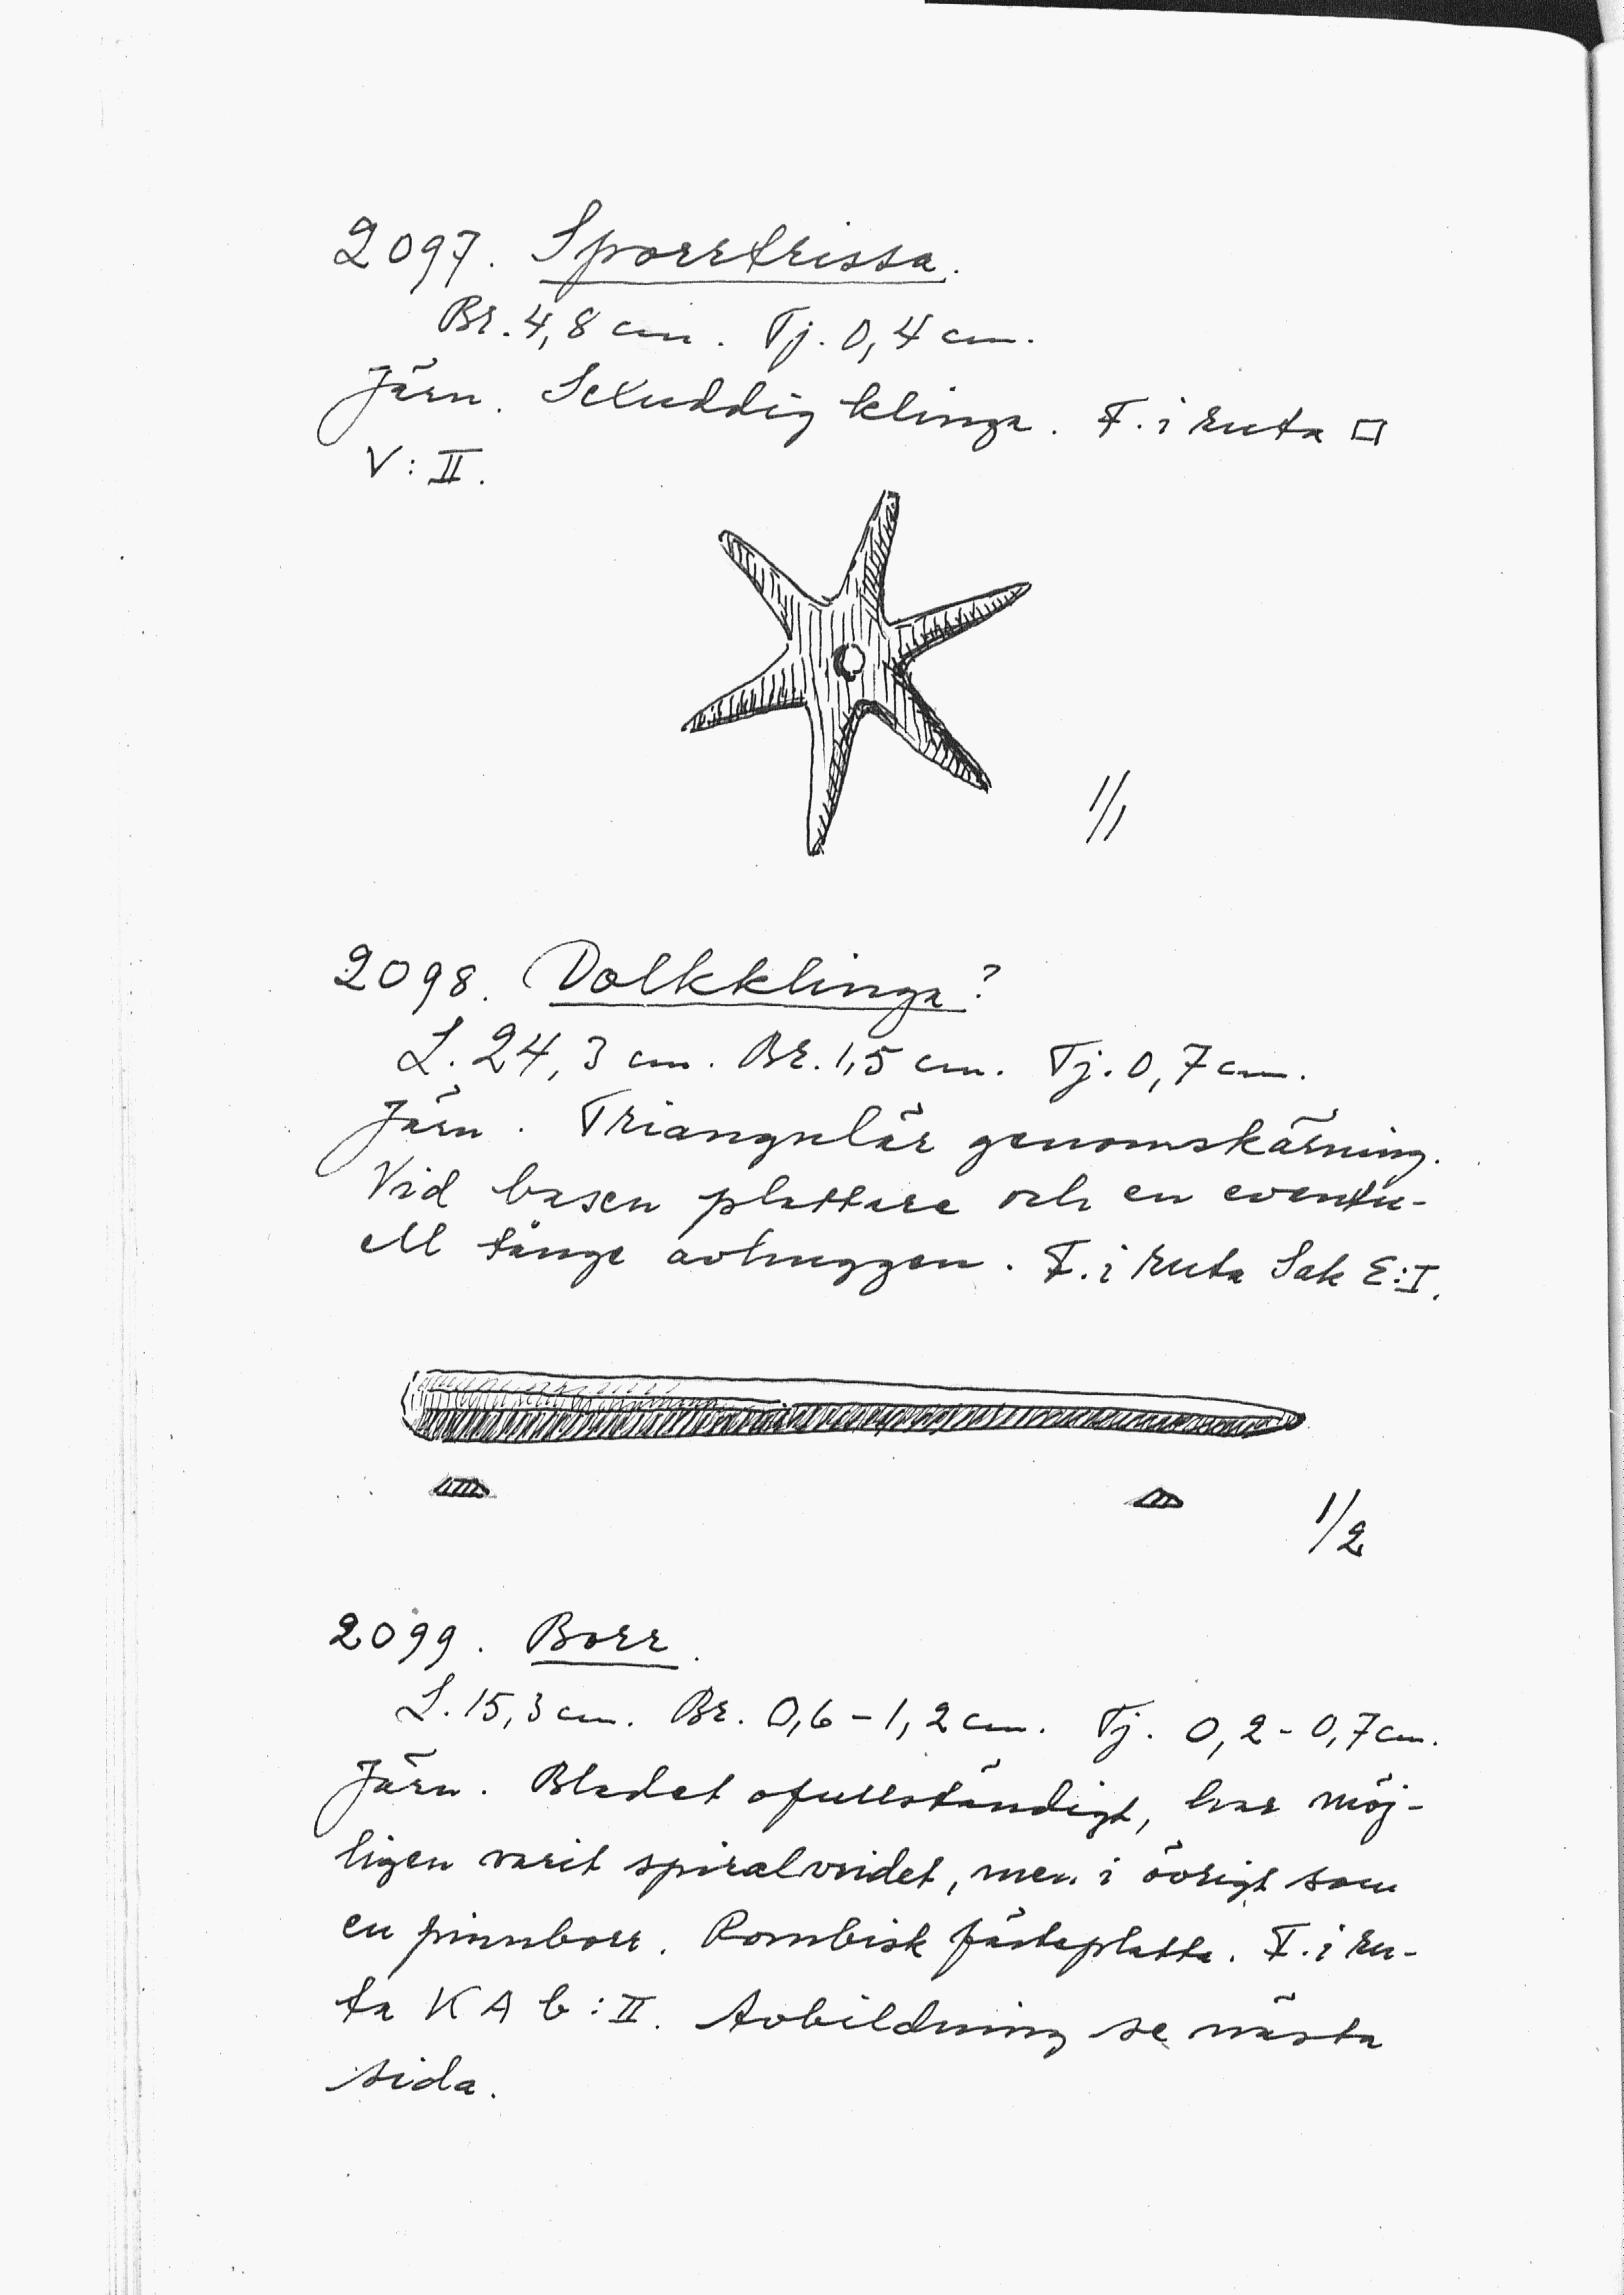 2097. Sporrtrissa.
Br. 4,8 cm. Tj. 0,4 cm.
Järn. Sexuddig klinga. F. i ruta □
V: II.
1/1
2098. Dolkklinga?
L. 24,3 cm. Br. 1,5 cm. Tj. 0,7 cm.
Järn. Triangulär genomskärning.
Vid basen plattare och en eventu-
ell tånge avhuggen. F. i ruta Sak E:I.
1/2
2099. Borr.
L. 15,3 cm. Br. 0,6-1,2 cm. Tj. 0,2-0,7 cm.
Järn. Bladet ofullständigt, har möj-
ligen varit spiralvridet, men i övrigt som
en pinnborr. Rombisk fästeplatta. F. i ru-
ta K A b: II. Avbildning se nästa
sida.